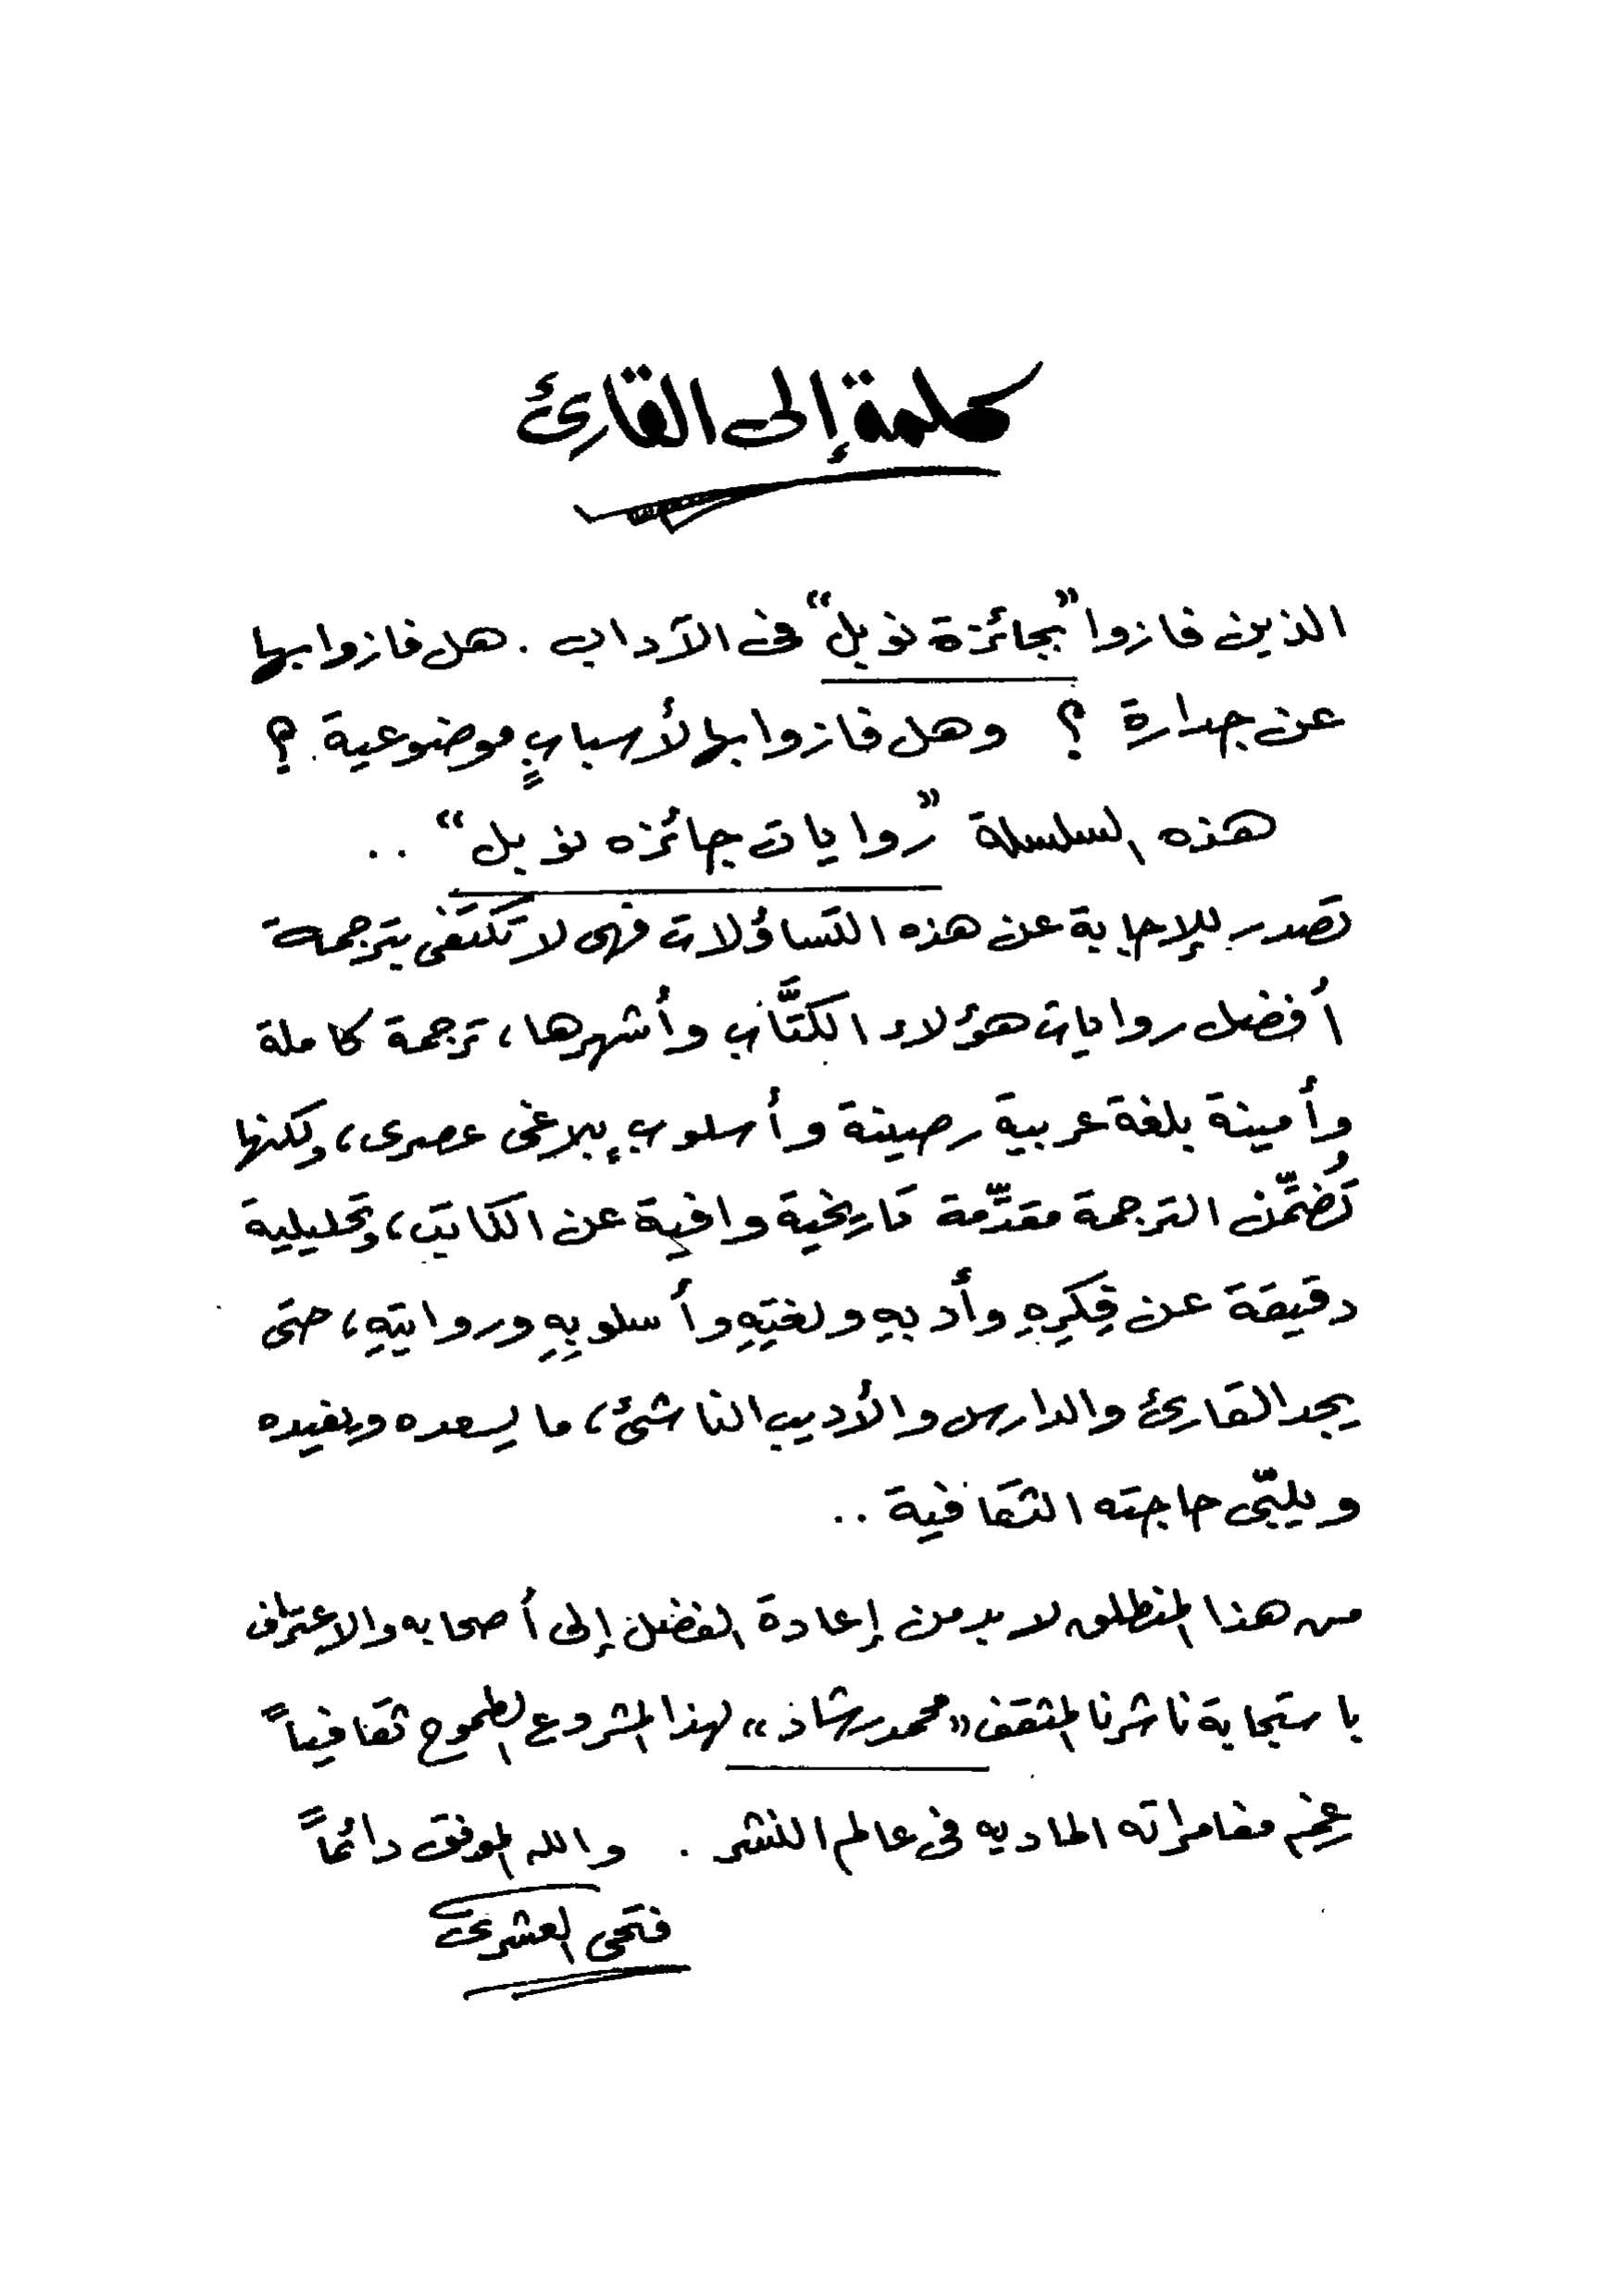 كلمة إلى القارئ
الذين فازوا "بجائزة نوبل" فى الآداب . هل فازوا بها
عن جدارة ؟ وهل فازوا بها لأسبابٍ موضوعية ؟
هذه السلسلة "روايات جائزه نوبل" ..
تصدر للإجابة عن هذه التساؤلات فهى لا تكتفى بترجمة
أفضل روايات هؤلاء الكتَّاب وأشهرها، ترجمة كاملة
وأمينة بلغة عربية رصينة وأسلوب بلاغى عصرى، ولكنها
تُضمِّن الترجمة مقدّمة تاريخية وافية عن الكاتب، وتحليلية
دقيقة عن فِكرِهِ وأدبهِ ولغتِهِ وأسلوبِهِ وروايتِهِ، حتى
يجد القارئ والدارس والأديب الناشئ، ما يسعده ويفيده
ويلبّى حاجته الثقافية ..
من هذا المنطلق لا بد من إعادة الفضل إلى أصحابه والاعتراف
باستجابة ناشرنا المثقف «محمد رشاد» لهذا المشروع الطموح ثقافياً
مغامراته الماديه فى عالم النشر . والله الموفق دائماً
فتحى العشرى